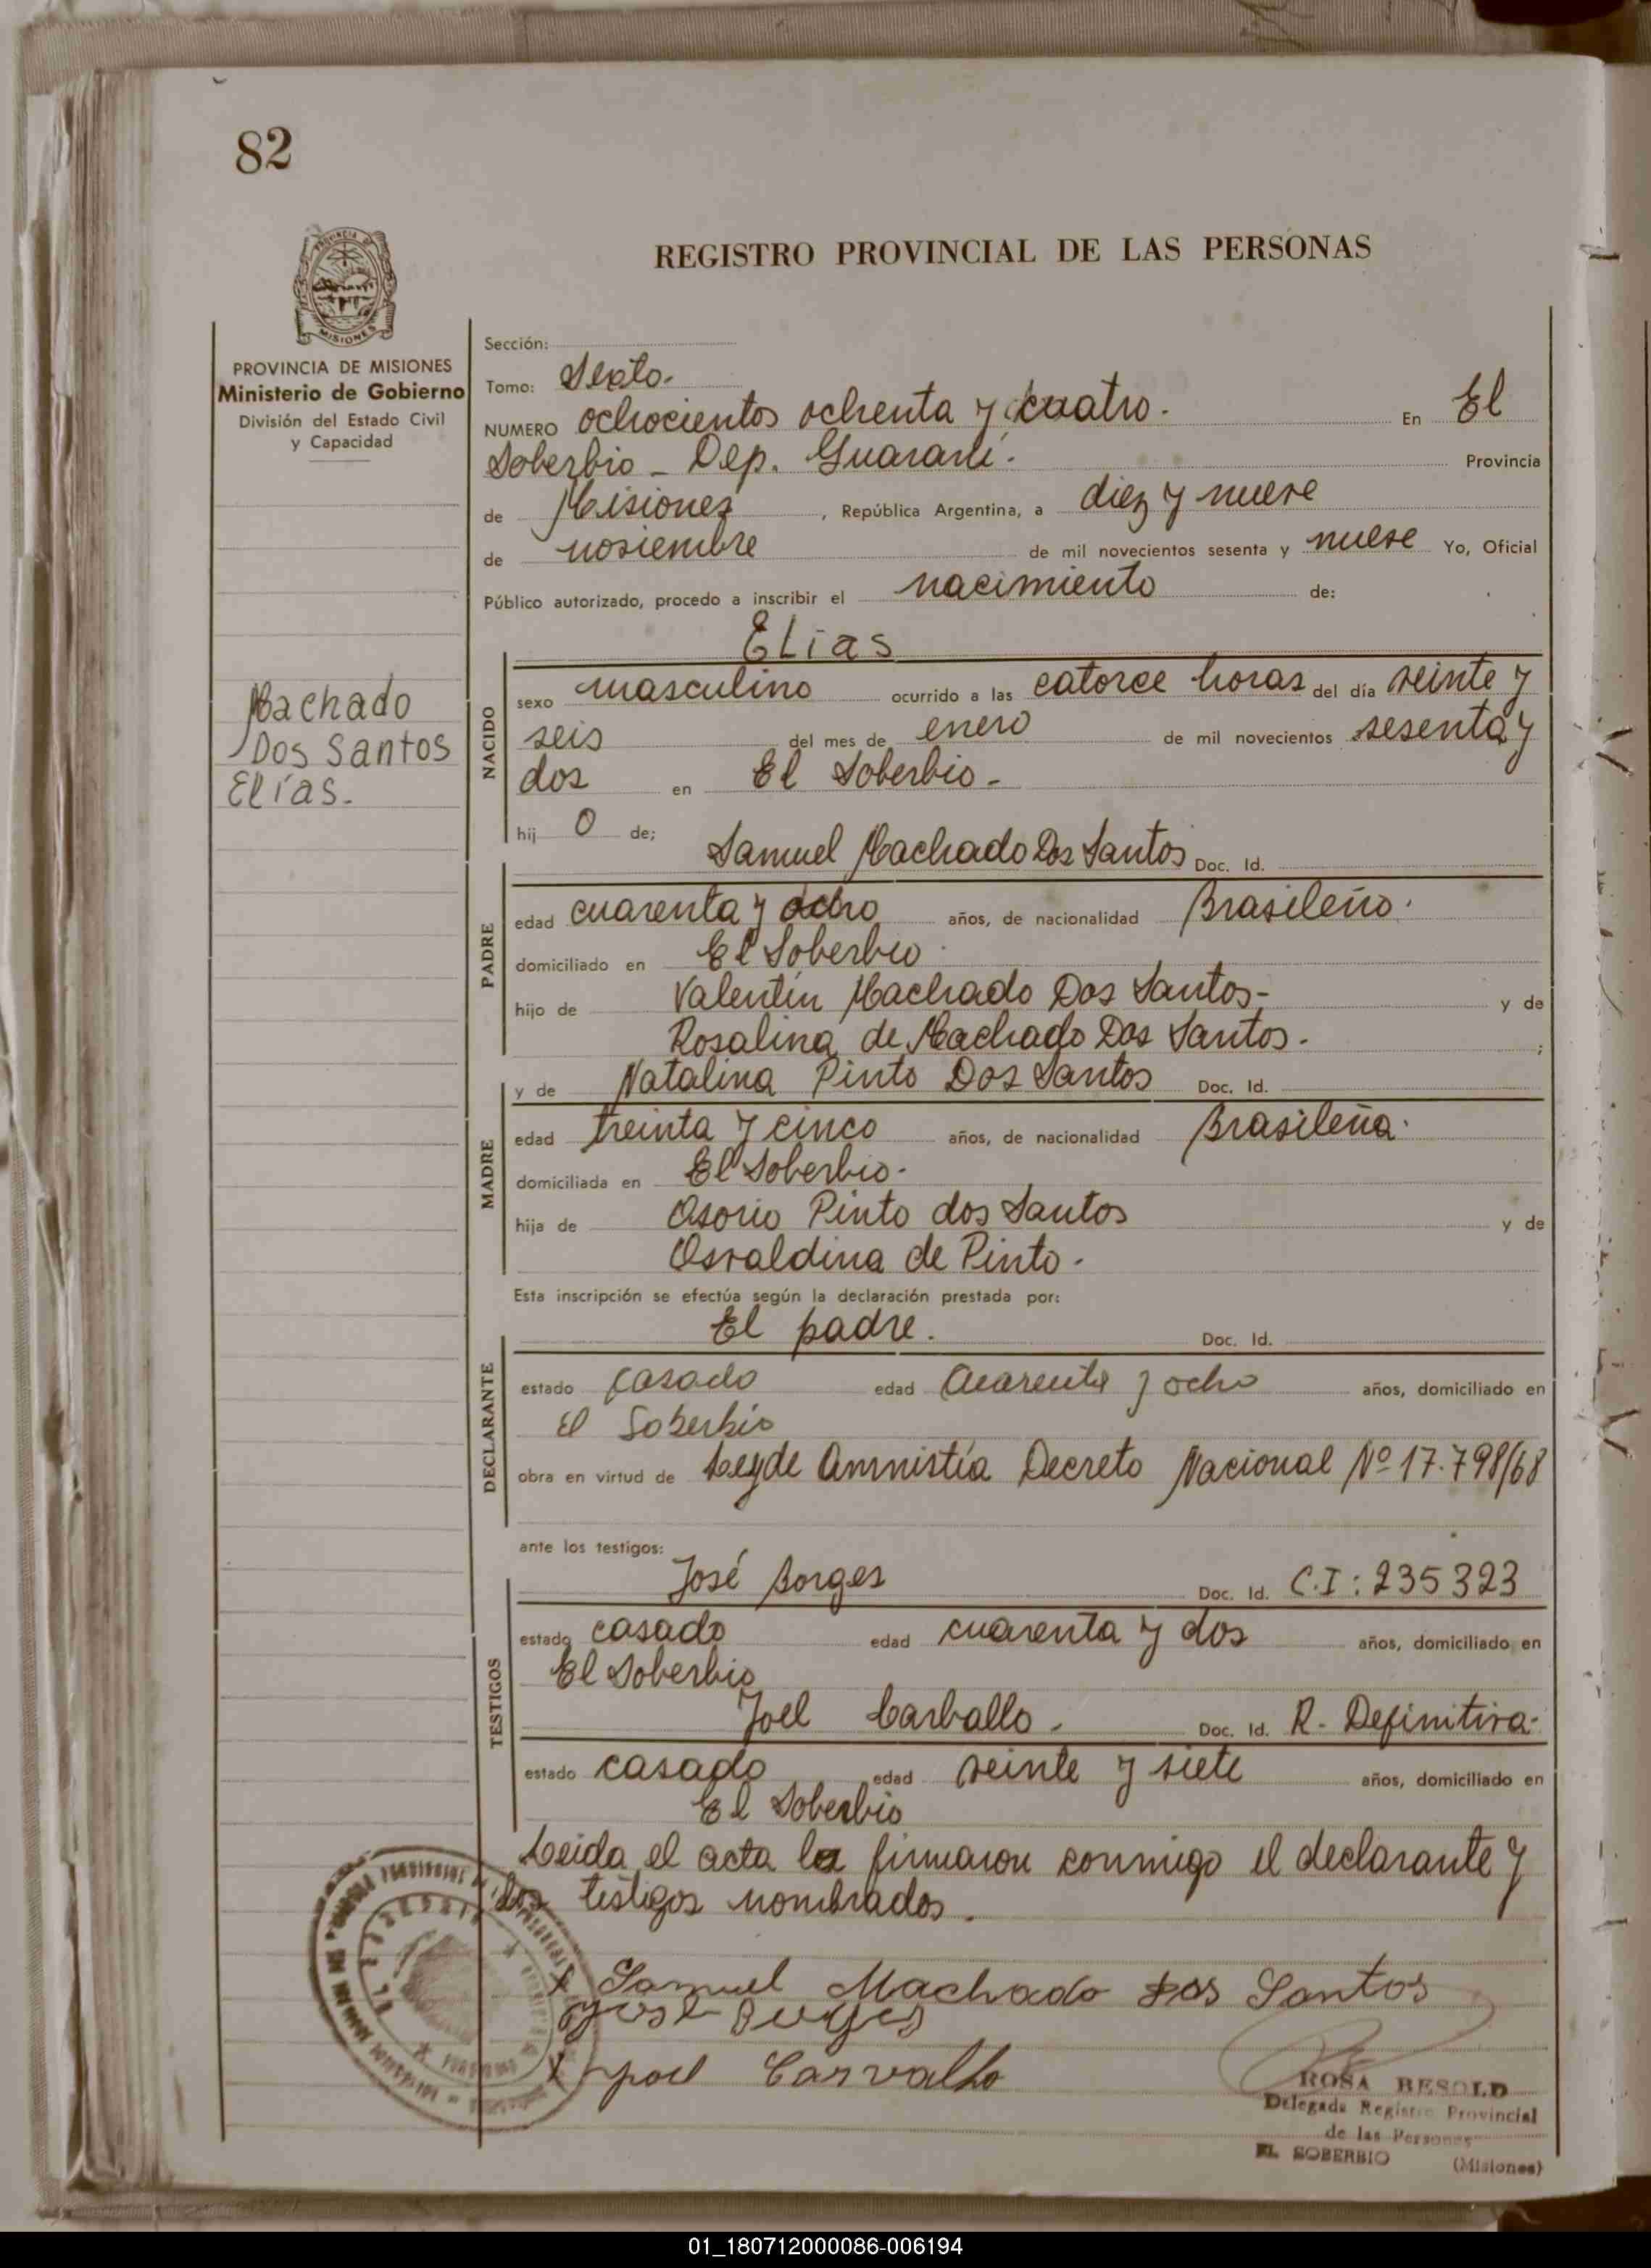 82
REGISTRO PROVINCIAL DE LAS PERSONAS
PROVINCIA DE
MISIONES
PROVINCIA DE MISIONES
Ministerio de Gobierno
División del Estado Civil
y Capacidad
Machado
Dos Santos
Elías.
Sección:
Tomo: Sexto.
NUMERO ochocientos ochenta y cuatro. En El
Soberbio - Dep. Guaraní. Provincia
de Misiones , República Argentina, a diez y nueve
de noviembre de mil novecientos sesenta y nueve Yo, Oficial
Público autorizado, procedo a inscribir el nacimiento de:
Elias
NACIDO
sexo masculino ocurrido a las catorce horas del día veinte y
seis del mes de enero de mil novecientos sesenta y
dos en El Soberbio -
hij o de;
Samuel Machado Dos Santos Doc. Id.
PADRE
edad cuarenta y ocho años, de nacionalidad Brasileño.
domiciliado en El Soberbio
hijo de Valentín Machado Dos Santos - y de
Rosalina de Machado Dos Santos. ;
y de Natalina Pinto Dos Santos Doc. Id.
MADRE
edad treinta y cinco años, de nacionalidad Brasileña.
domiciliada en El Soberbio.
hija de Osorio Pinto dos Santos y de
Osvaldina de Pinto.
Esta inscripción se efectúa según la declaración prestada por:
El padre. Doc. Id.
DECLARANTE
estado casado edad cuarenta y ocho años, domiciliado en
El Soberbio
obra en virtud de Ley de Amnistía Decreto Nacional Nº 17.798/68
ante los testigos:
José Borges Doc. Id. C.I: 235323
TESTIGOS
estado casado edad cuarenta y dos años, domiciliado en
El Soberbio
Joel Carballo. Doc. Id. R. Definitiva.
estado casado edad veinte y siete años, domiciliado en
El Soberbio
Leida el acta la firmaron conmigo el declarante y
los testigos nombrados.
x Samuel Machado dos Santos
José Borges
x Joel Carvalho
ROSA BESOLD
Delegada Registro Provincial
de las Personas
EL SOBERBIO (Misiones)
01_180712000086-006194